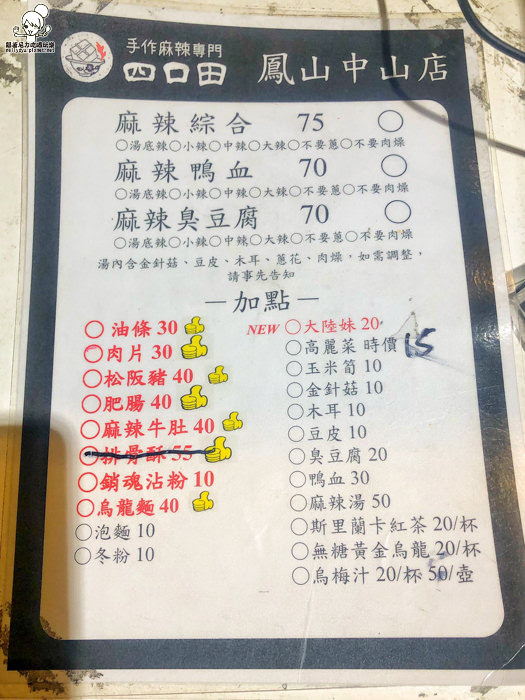 跟著尼力吃喝玩樂
nellydyu.pixnet.net
手作麻辣專門
四口田 鳳山中山店
麻辣綜合 75 ○
○湯底辣○小辣○中辣○大辣○不要蔥○不要肉燥
麻辣鴨血 70 ○
○湯底辣○小辣○中辣○大辣○不要蔥○不要肉燥
麻辣臭豆腐 70 ○
○湯底辣○小辣○中辣○大辣○不要蔥○不要肉燥
湯內含金針菇、豆皮、木耳、蔥花、肉燥，如需調整，
請事先告知
—加點—
○油條 30
○肉片 30
○松阪豬 40
○肥腸 40
○麻辣牛肚 40
○排骨酥 55
○銷魂沾粉 10
○烏龍麵 40
○泡麵 10
○冬粉 10
NEW ○大陸妹 20
○高麗菜 時價 15
○玉米筍 10
○金針菇 10
○木耳 10
○豆皮 10
○臭豆腐 20
○鴨血 30
○麻辣湯 50
○斯里蘭卡紅茶 20/杯
○無糖黃金烏龍 20/杯
○烏梅汁 20/杯 50/壺